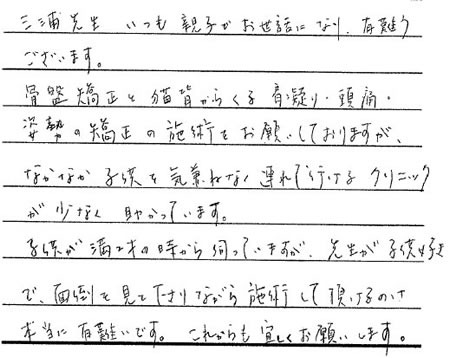 三浦先生 いつも親子がお世話になり、有難う
ございます。
骨盤矯正と猫背からくる肩凝り・頭痛・
姿勢の矯正の施術をお願いしておりますが、
なかなか子供を気兼ねなく連れて行けるクリニック
が少なく助かっています。
子供が満2才の時から伺っていますが、先生が子供好き
で、面倒を見て下さりながら施術して頂けるのは
本当に有難いです。これからも宜しくお願いします。